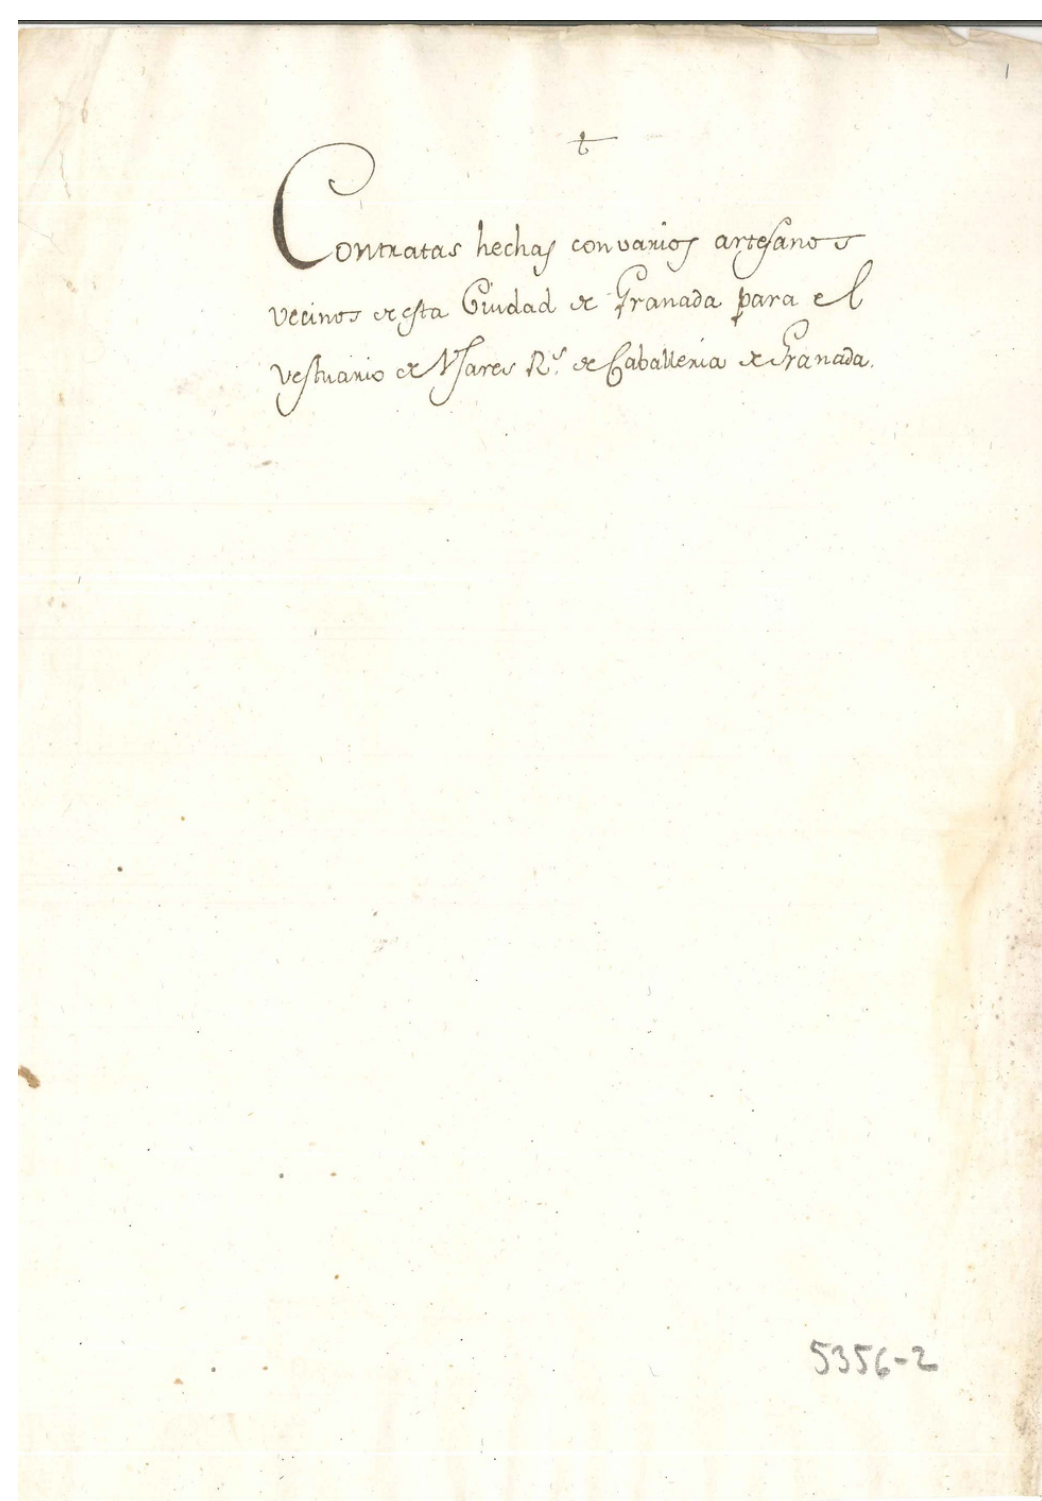 1
Contratas hechas con varios artesanos
vecinos de esta Ciudad de Granada para el
vestuario de Vsares R.s de Caballeria de Granada.
5356-2